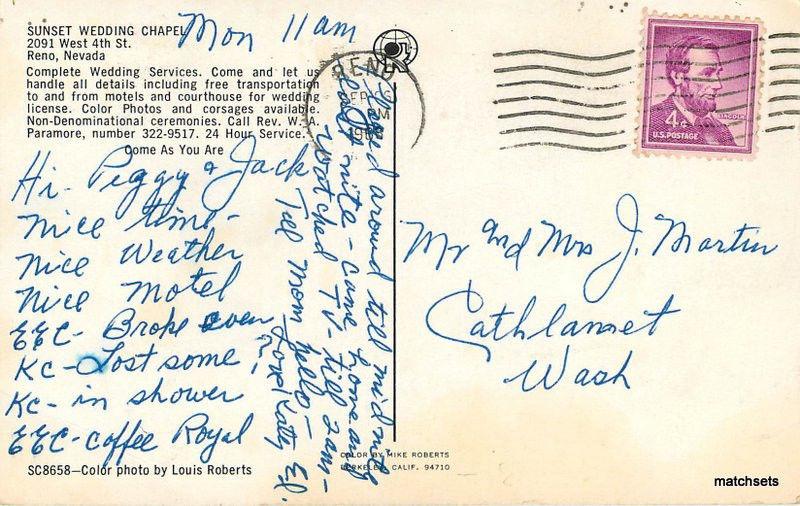 SUNSET WEDDING CHAPEL
2091 West 4th St.
Reno, Nevada
Complete Wedding Services. Come and let us
handle all details including free transportation
to and from motels and courthouse for wedding
license. Color Photos and corsages available.
Non-Denominational ceremonies. Call Rev. W. A.
Paramore, number 322-9517. 24 Hour Service.
Come As You Are
Mon 11 am
Hi - Peggy & Jack
nice time -
nice Weather
nice motel
EEC - Broke even
KC - Lost some
KC - in shower
EEC - coffee Royal
around till midnite
last nite - came home and
Watched TV - till 2am -
Tell mom hello -
Love Katy & E.
SC8658—Color photo by Louis Roberts
COLOR BY MIKE ROBERTS
BERKELEY, CALIF. 94710
RENO
PM
4¢
LINCOLN
U.S. POSTAGE
Mr and Mrs J. Martin
Cathlamet
Wash
matchsets